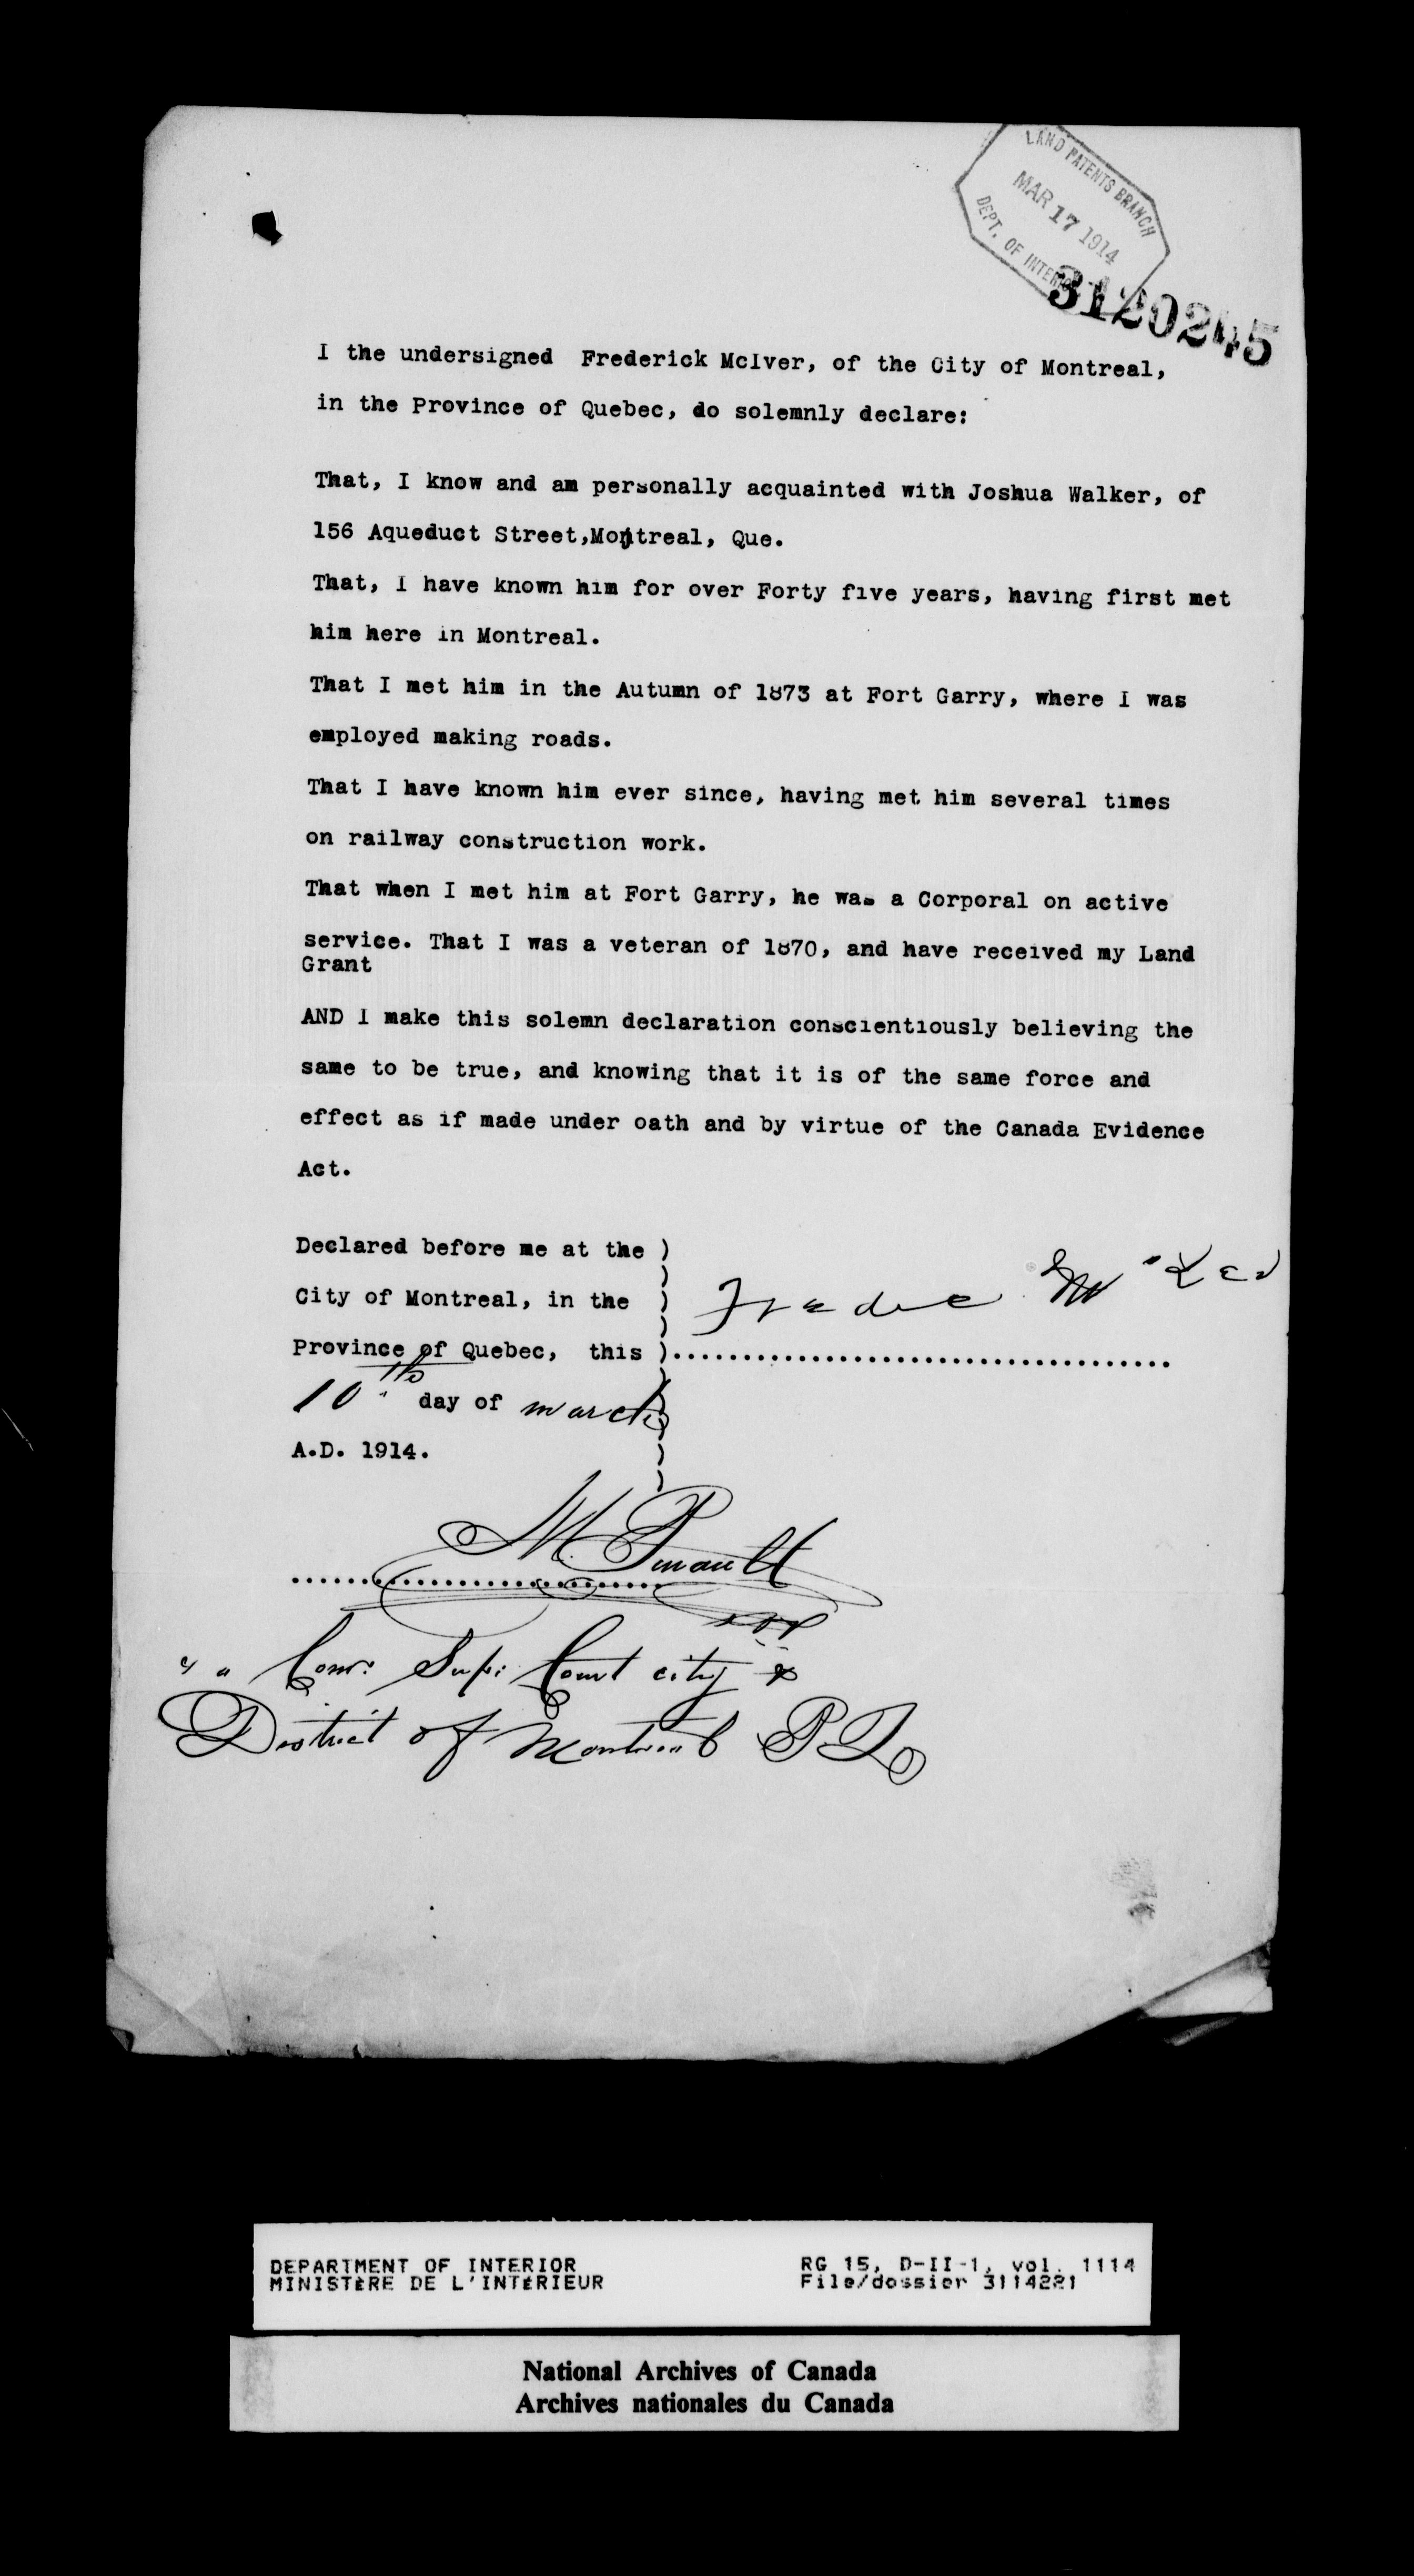 LAND PATENTS BRANCH
MAR 17 1914
DEPT. OF INTERIOR
3120245
I the undersigned Frederick McIver, of the City of Montreal,
in the Province of Quebec, do solemnly declare:
That, I know and am personally acquainted with Joshua Walker, of
156 Aqueduct Street,Montreal, Que.
That, I have known him for over Forty five years, having first met
him here in Montreal.
That I met him in the Autumn of 1873 at Fort Garry, where I was
employed making roads.
That I have known him ever since, having met him several times
on railway construction work.
That when I met him at Fort Garry, he was a Corporal on active
service. That I was a veteran of 1870, and have received my Land
Grant
AND I make this solemn declaration conscientiously believing the
same to be true, and knowing that it is of the same force and
effect as if made under oath and by virtue of the Canada Evidence
Act.
Declared before me at the )
City of Montreal, in the )
Province of Quebec, this )
10th day of march
A.D. 1914.
Com: Sup: Court city &
District of Montreal P Q
DEPARTMENT OF INTERIOR
MINISTÈRE DE L'INTÉRIEUR
RG 15, D-II-1, vol. 1114
File/dossier 3114221
National Archives of Canada
Archives nationales du Canada